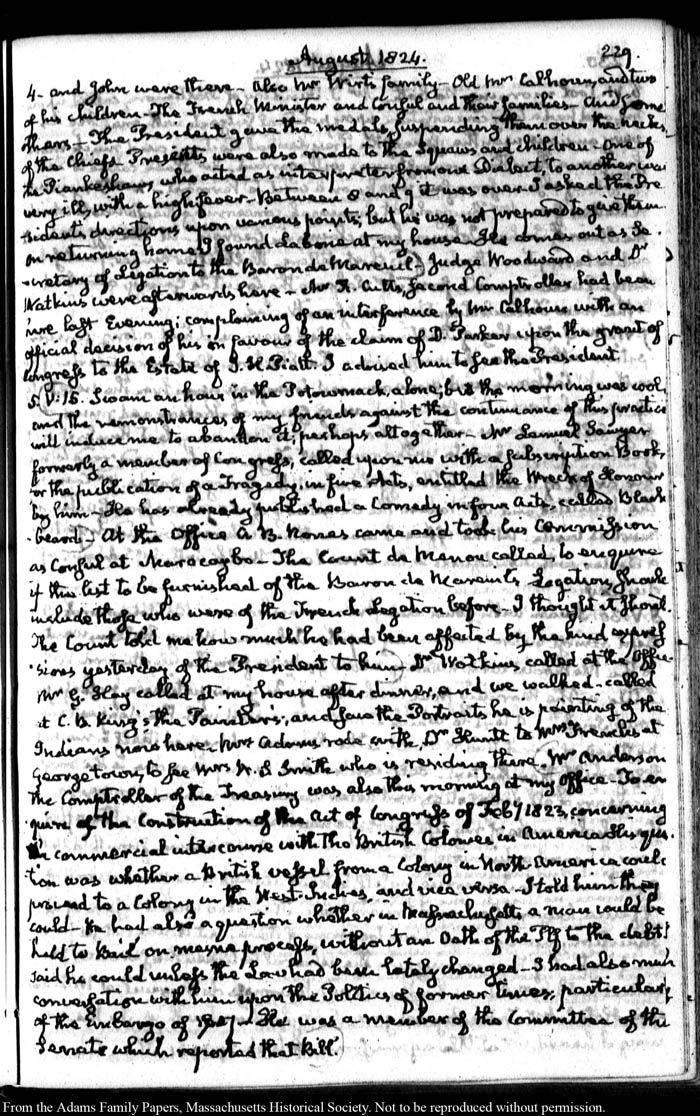 August 1824.
229.
4- and John were there - Also Mr Wirt's family - Old Mrs Calhoun, and two
of his children - The French Minister and Consul and their families - And some
others - The President gave the medals, suspending them over the necks
of the Chiefs Presents were also made to the Squaws and children - One of
the Piankeshaws, who acted as interpreter from one Dialect, to another was
very ill, with a high fever - Between 8 and 9 it was over - I asked the Pre
sident's directions upon various points, but he was not prepared to give them.
On returning home, I found Laborie at my house - He comes out as Se
cretary of Legation to the Baron de Mareuil - Judge Woodward and Dr
Watkins were afterwards here - Mr R. Cutts, second Comptroller had been
here last Evening; complaining of an interference by Mr Calhoun with an
official decision of his in favour of the claim of D. Parker upon the grant of
Congress to the Estate of J. H Piatt. I advised him to see the President.
5. V:15. Swam an hour in the Potowmack, alone; but the morning was cool,
and the remonstrances of my friends against the continuance of this practice
will induce me to abandon it; perhaps altogether - Mr Lemuel Sawyer
formerly a member of Congress, called upon me with a subscription Book,
for the publication of a Tragedy, in five Acts, entitled the Wreck of Honour
by him - He has already published a Comedy in four Acts, called Black
-beard - At the Office A. B. Nones came and took his Commission
as Consul at Maracaybo - The Count de Menou called, to enquire
if the list to be furnished of the Baron de Mareuil's Legation, should
include those who were of the French Legation before - I thought it should.
The Count told me how much he had been affected by the kind expres
sions yesterday of the President to him - Dr Watkins called at the Office
Mr G. Hay called at my house after dinner, and we walked - called
at C. B. King's the Painter's, and saw the Portraits he is painting of the
Indians now here. Mrs Adams rode with Dr Huntt to Mrs French's at
Georgetown, to see Mrs W. S Smith who is residing there. Mr Anderson
the Comptroller of the Treasury was also this morning at my Office - To en
quire of the Construction of the Act of Congress of Feby 1823, concerning
the commercial intercourse with the British Colonies in America - His ques
tion was whether a British vessel from a Colony in North America could
proceed to a Colony in the West-Indies, and vice versa - I told him they
could - He had also a question whether in Massachusetts, a man could be
held to bail on mesne process, without an Oath of the Plf to the debt. I
said he could unless the Law had been lately changed - I had also much
conversation with him upon the Politics of former times, particularly
of the Embargo of 1807 - He was a member of the Committee of the
Senate which reported that Bill.
From the Adams Family Papers, Massachusetts Historical Society. Not to be reproduced without permission.